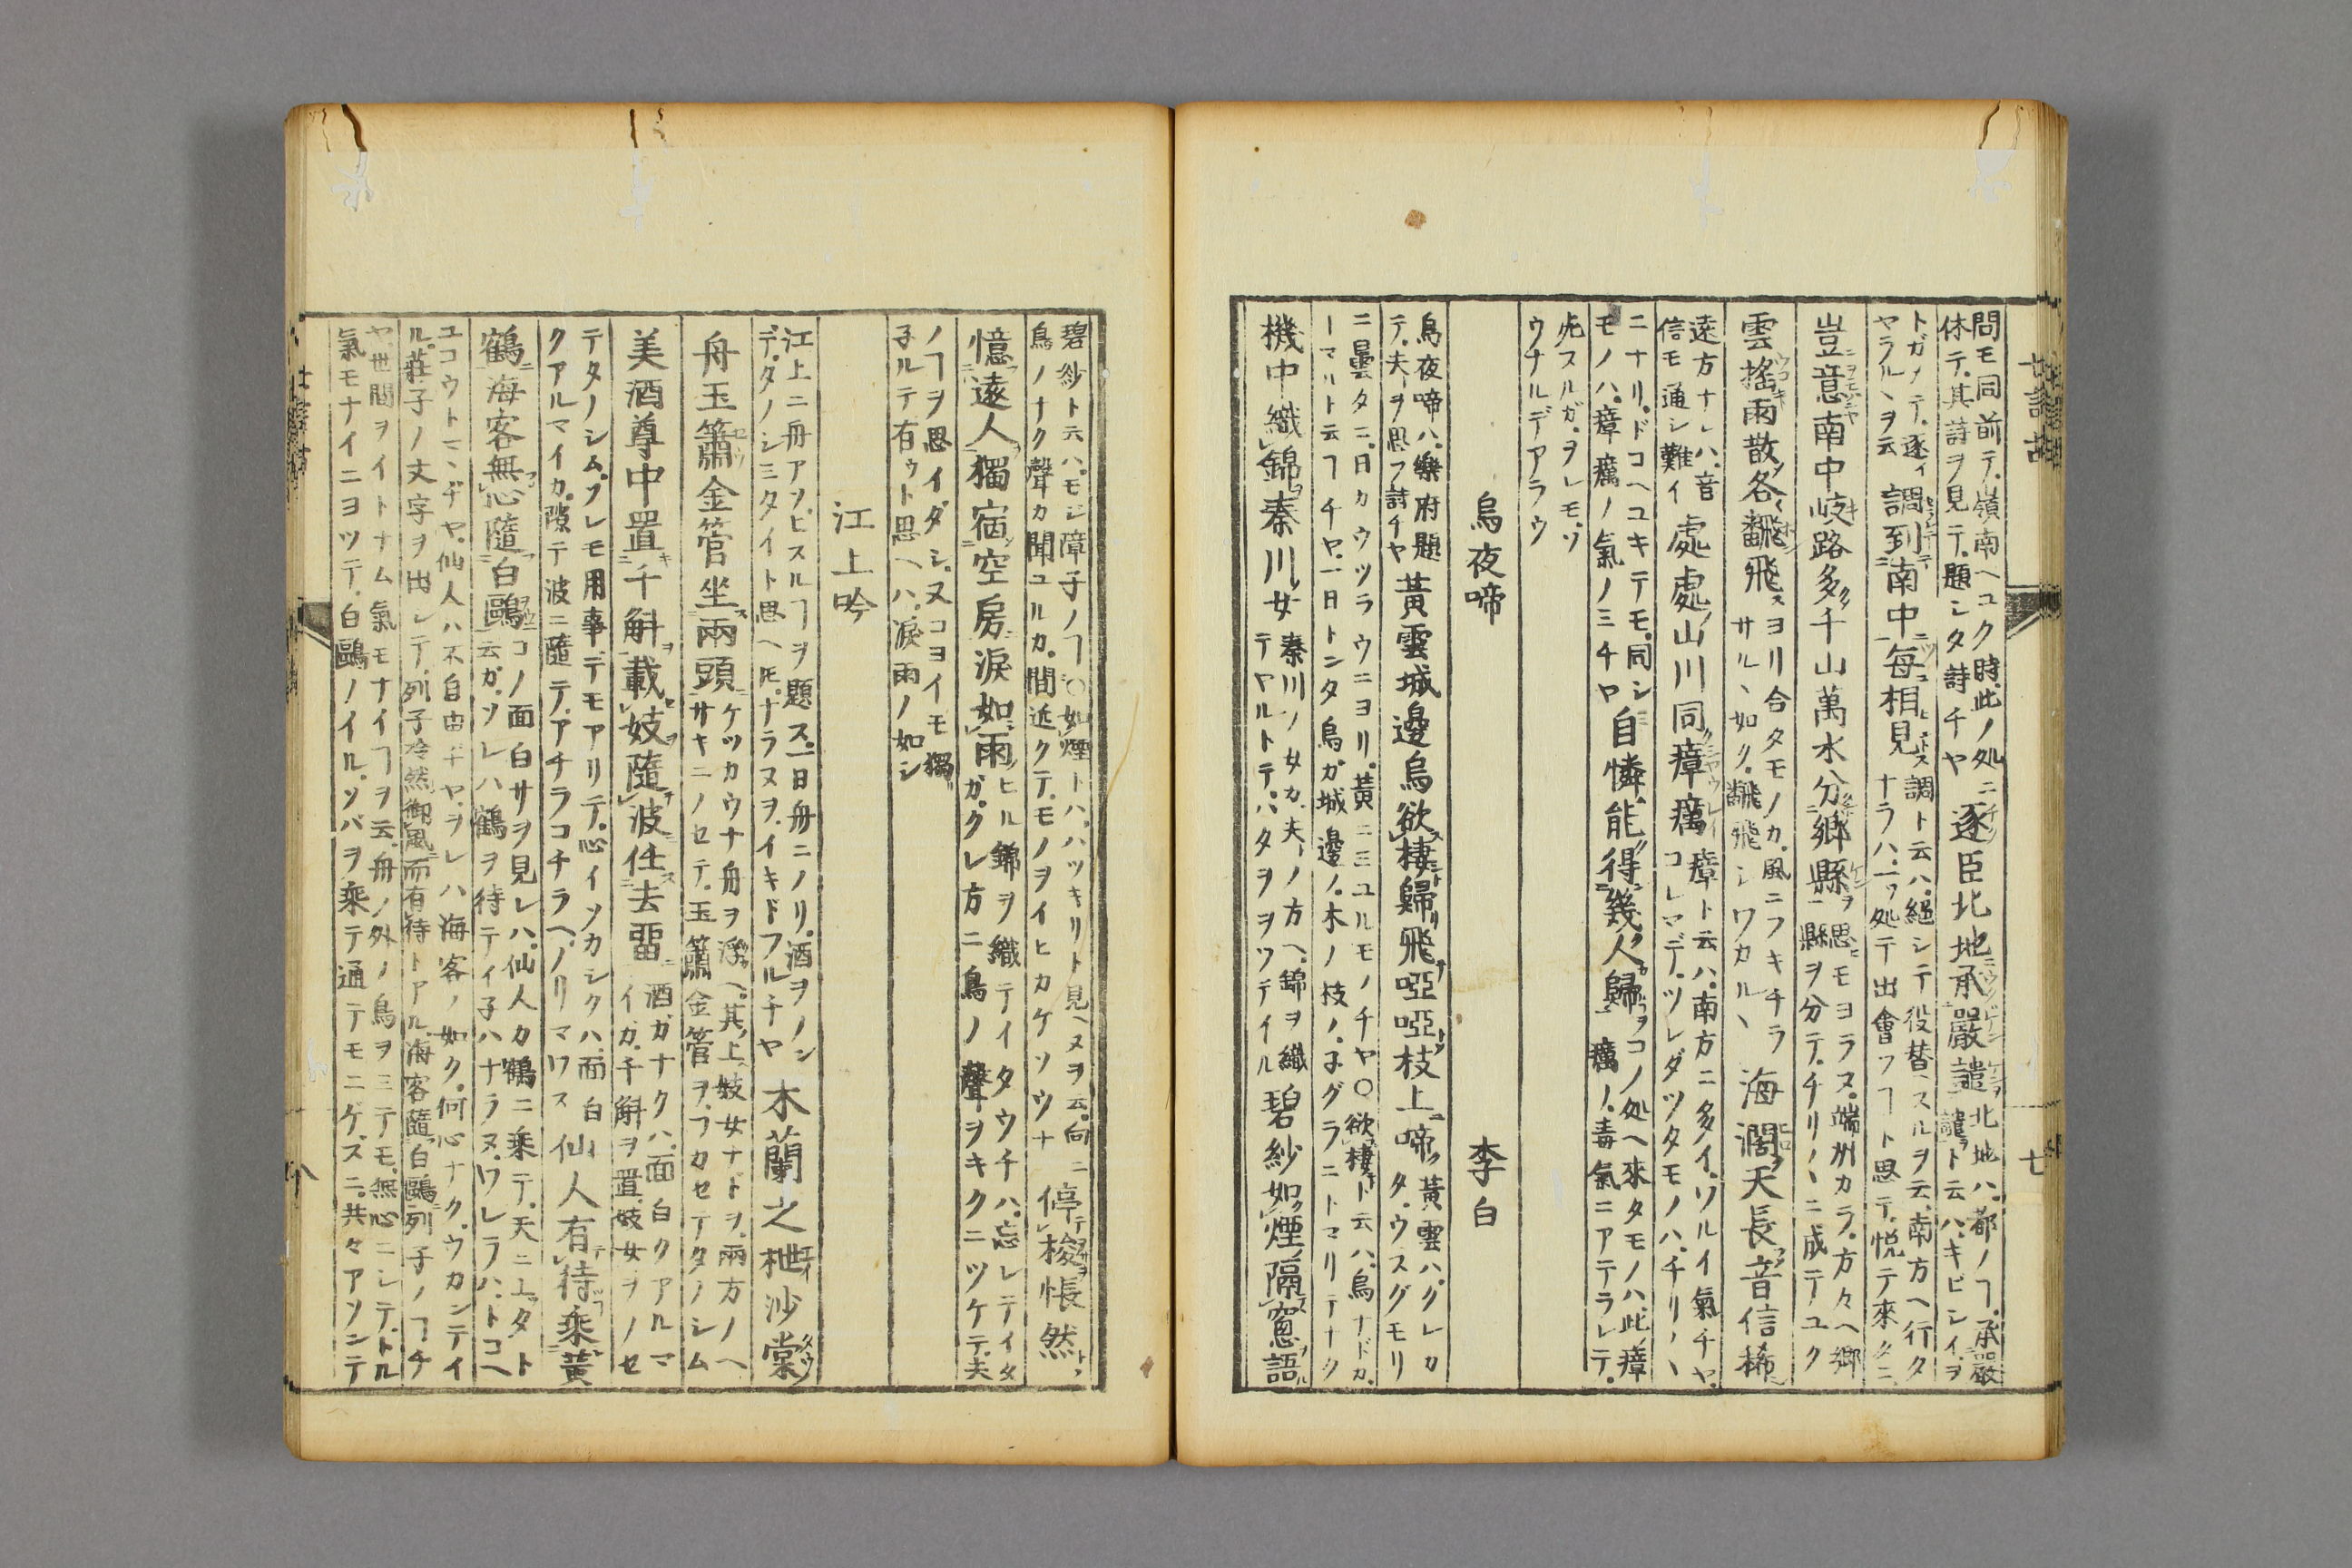 問モ同前テ嶺南ヘユク時此ノ処ニ
休テ其詩ヲ見テ題シタ詩チヤ
逐臣北地承嚴譴
北地ハ都ノヿ承嚴
譴ト云ハキビシイヲ
トガメテ逐イ
ヤラルヽヲ云
調到南中每相見
調ト云ハ絕シテ役替スルヲ云南方ヘ行タ
ナラハ一ツ処テ出會フヿト思テ悦テ來タニ
豈意南中岐路多千山萬水分鄉縣
思モヨラヌ端州カラ方々ヘ鄉
縣ヲ分テチリ〳〵ニ成テユク
雲搖雨散各飜飛
ヨリ合タモノカ風ニフキチラ
サルヽ如ク飜飛シワカルヽ
海濶天長音信稀
遠方ナレハ音
信モ通シ難イ
處處山川同瘴癘
瘴ト云ハ南方ニ多イソルイ氣チヤ
コレマデツレダツタモノハチリ〳〵
ニナリドコヘユキテモ同シ
モノハ瘴癘ノ氣ノミチヤ
自憐能得幾人歸
コノ処ヘ來タモノハ此瘴
癘ノ毒氣ニアテラレテ
死スルガヲレモソ
ウナルデアラウ
烏夜啼 李白
烏夜啼ハ樂府題
テ夫ヲ思フ詩チヤ
黃雲城邊烏欲棲歸飛啞啞枝上啼
黃雲ハクレカ
タウスグモリ
ニ曇タニ日カウツラウニヨリ黃ニミユルモノチヤ〇欲棲ト云ハ烏ナドカ
トマルト云ヿチヤ一日トンタ烏ガ城邊ノ木ノ枝ノ子グラニトマリテナク
機中織錦秦川女
秦川ノ女カ夫ノ方ヘ錦ヲ織
テヤルトテハタヲヲツテイル
碧紗如煙隔窻語
七
碧紗ト云ハモジ障子ノヿ〇如煙トハハツキリト見ヘヌヲ云向ニ
烏ノナク聲カ聞ユルカ間近クテモノヲイヒカケソウナ
停梭悵然
憶遠人獨宿空房淚如雨
ヒル錦ヲ織テイタウチハ忘レテイタ
ガクレ方ニ烏ノ聲ヲキクニツケテ夫
ノヿヲ思イダシヌコヨイモ獨
子ルテ有ウト思ヘハ淚雨ノ如シ
江上吟
江上ニ舟アソビスルヿヲ題ス一日舟ニノリ酒ヲノン
デタノシミタイト思ヘ𪜈ナラヌヲイキドフルチヤ
木蘭之枻沙棠
舟玉簫金管坐兩頭
ケツカウナ舟ヲ浮ヘ其上ヘ妓女ナドヲ兩方ノヘ
サキニノセテ玉簫金管ヲフカセテタノシム
美酒尊中置千斛載妓隨波任去畱
酒ガナクハ面白クアルマ
イガ千斛ヲ置妓女ヲノセ
テタノシムソレモ用事デモアリテ心イソカシクハ面白
クアルマイカ隙テ波ニ隨テアチラコチラヘノリマワス
仙人有待乘黃
鶴海客無心隨白鷗
コノ面白サヲ見レハ仙人カ鶴ニ乘テ天ニ上タト
云ガソレハ鶴ヲ待テイ子ハナラヌワレラハトコヘ
ユコウトマヽヂヤ仙人ハ不自由チヤヲレハ海客ノ如ク何心ナクウカンテイ
ル莊子ノ文字ヲ出シテ列子冷然御風而有待トアル海客隨白鷗列子ノヿチ
ヤ世間ヲイトナム氣モナイヿヲ云舟ノ外ノ鳥ヲミテモ無心ニシテトル
氣モナイニヨツテ白鷗ノイルソバヲ乘テ通テモニゲズニ共々アソンテ
八